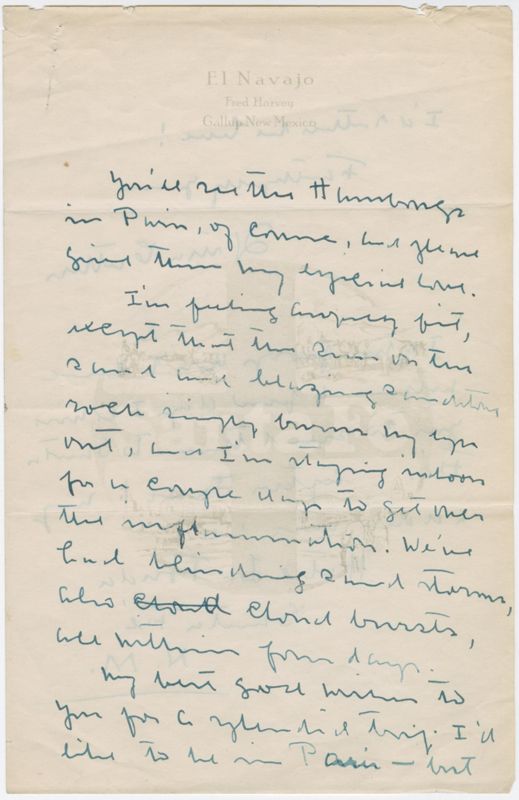 El Navajo
Fred Harvey
Gallup, New Mexico
You'll see the Hambourgs
in Paris, of course, and please
give them my especial love.
I'm feeling awfully fit,
except that the sun on the
sand and blazing sandstone
rock simply burns my eyes
out, and I'm staying indoors
for a couple days to get over
the inflammation. We've
had blinding sand storms,
also cloud cloud bursts,
all within four days.
My best good wishes to
you for a splendid trip. I'd
like to be in Paris — but